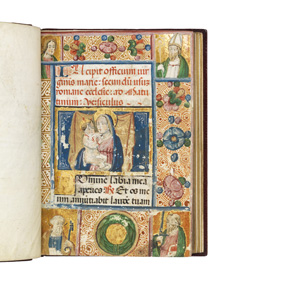 Incipit officium uir
ginis marie: secundũ usũ
romane ecclesie: ad Matu
tinum: versiculus
Domine labia mea
aperies R Et os me
um annuntiabit laudẽ tuam